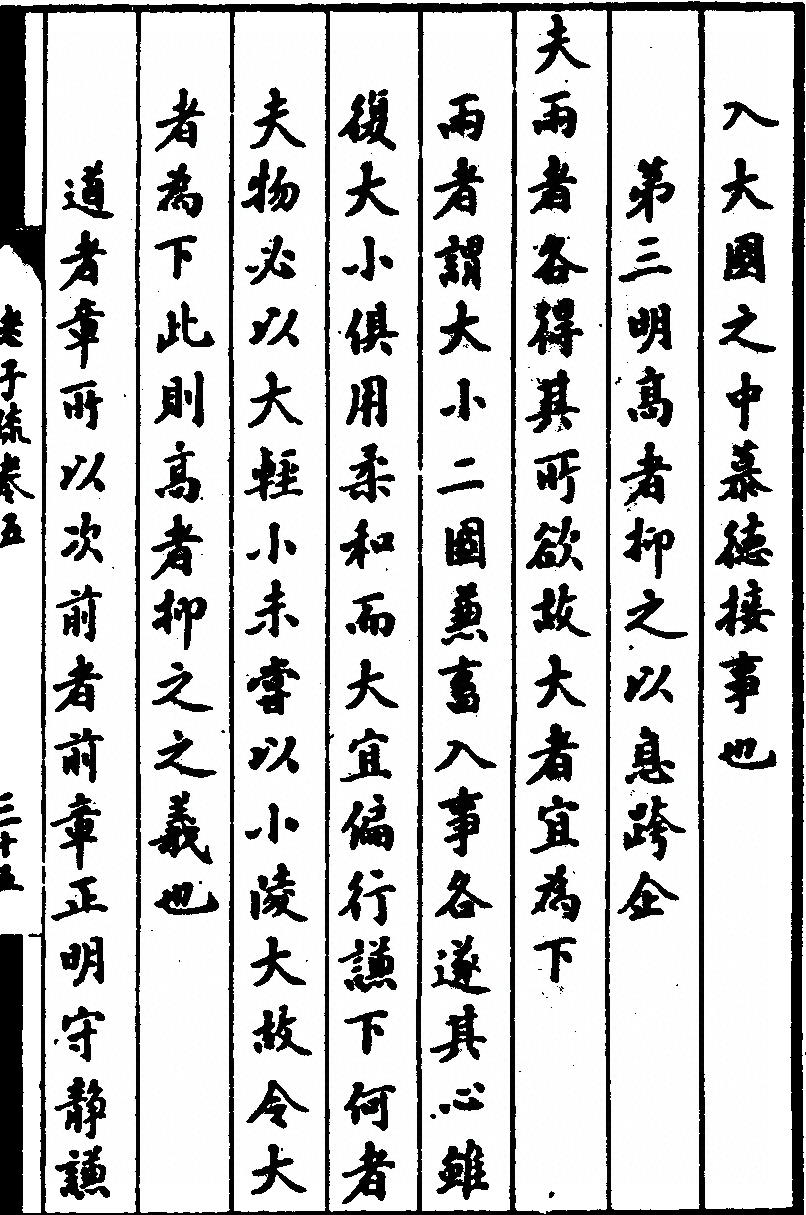 入大國之中慕德接事也
第三明高者抑之以息跨企
夫兩者各得其所欲故大者宜為下
兩者謂大小二國兼畜入事各遂其心雖
復大小俱用柔和而大宜偏行謙下何者
夫物必以大輕小未嘗以小陵大故令大
者為下此則高者抑之之義也
道者章所以次前者前章正明守靜謙
老子疏卷五
三十五